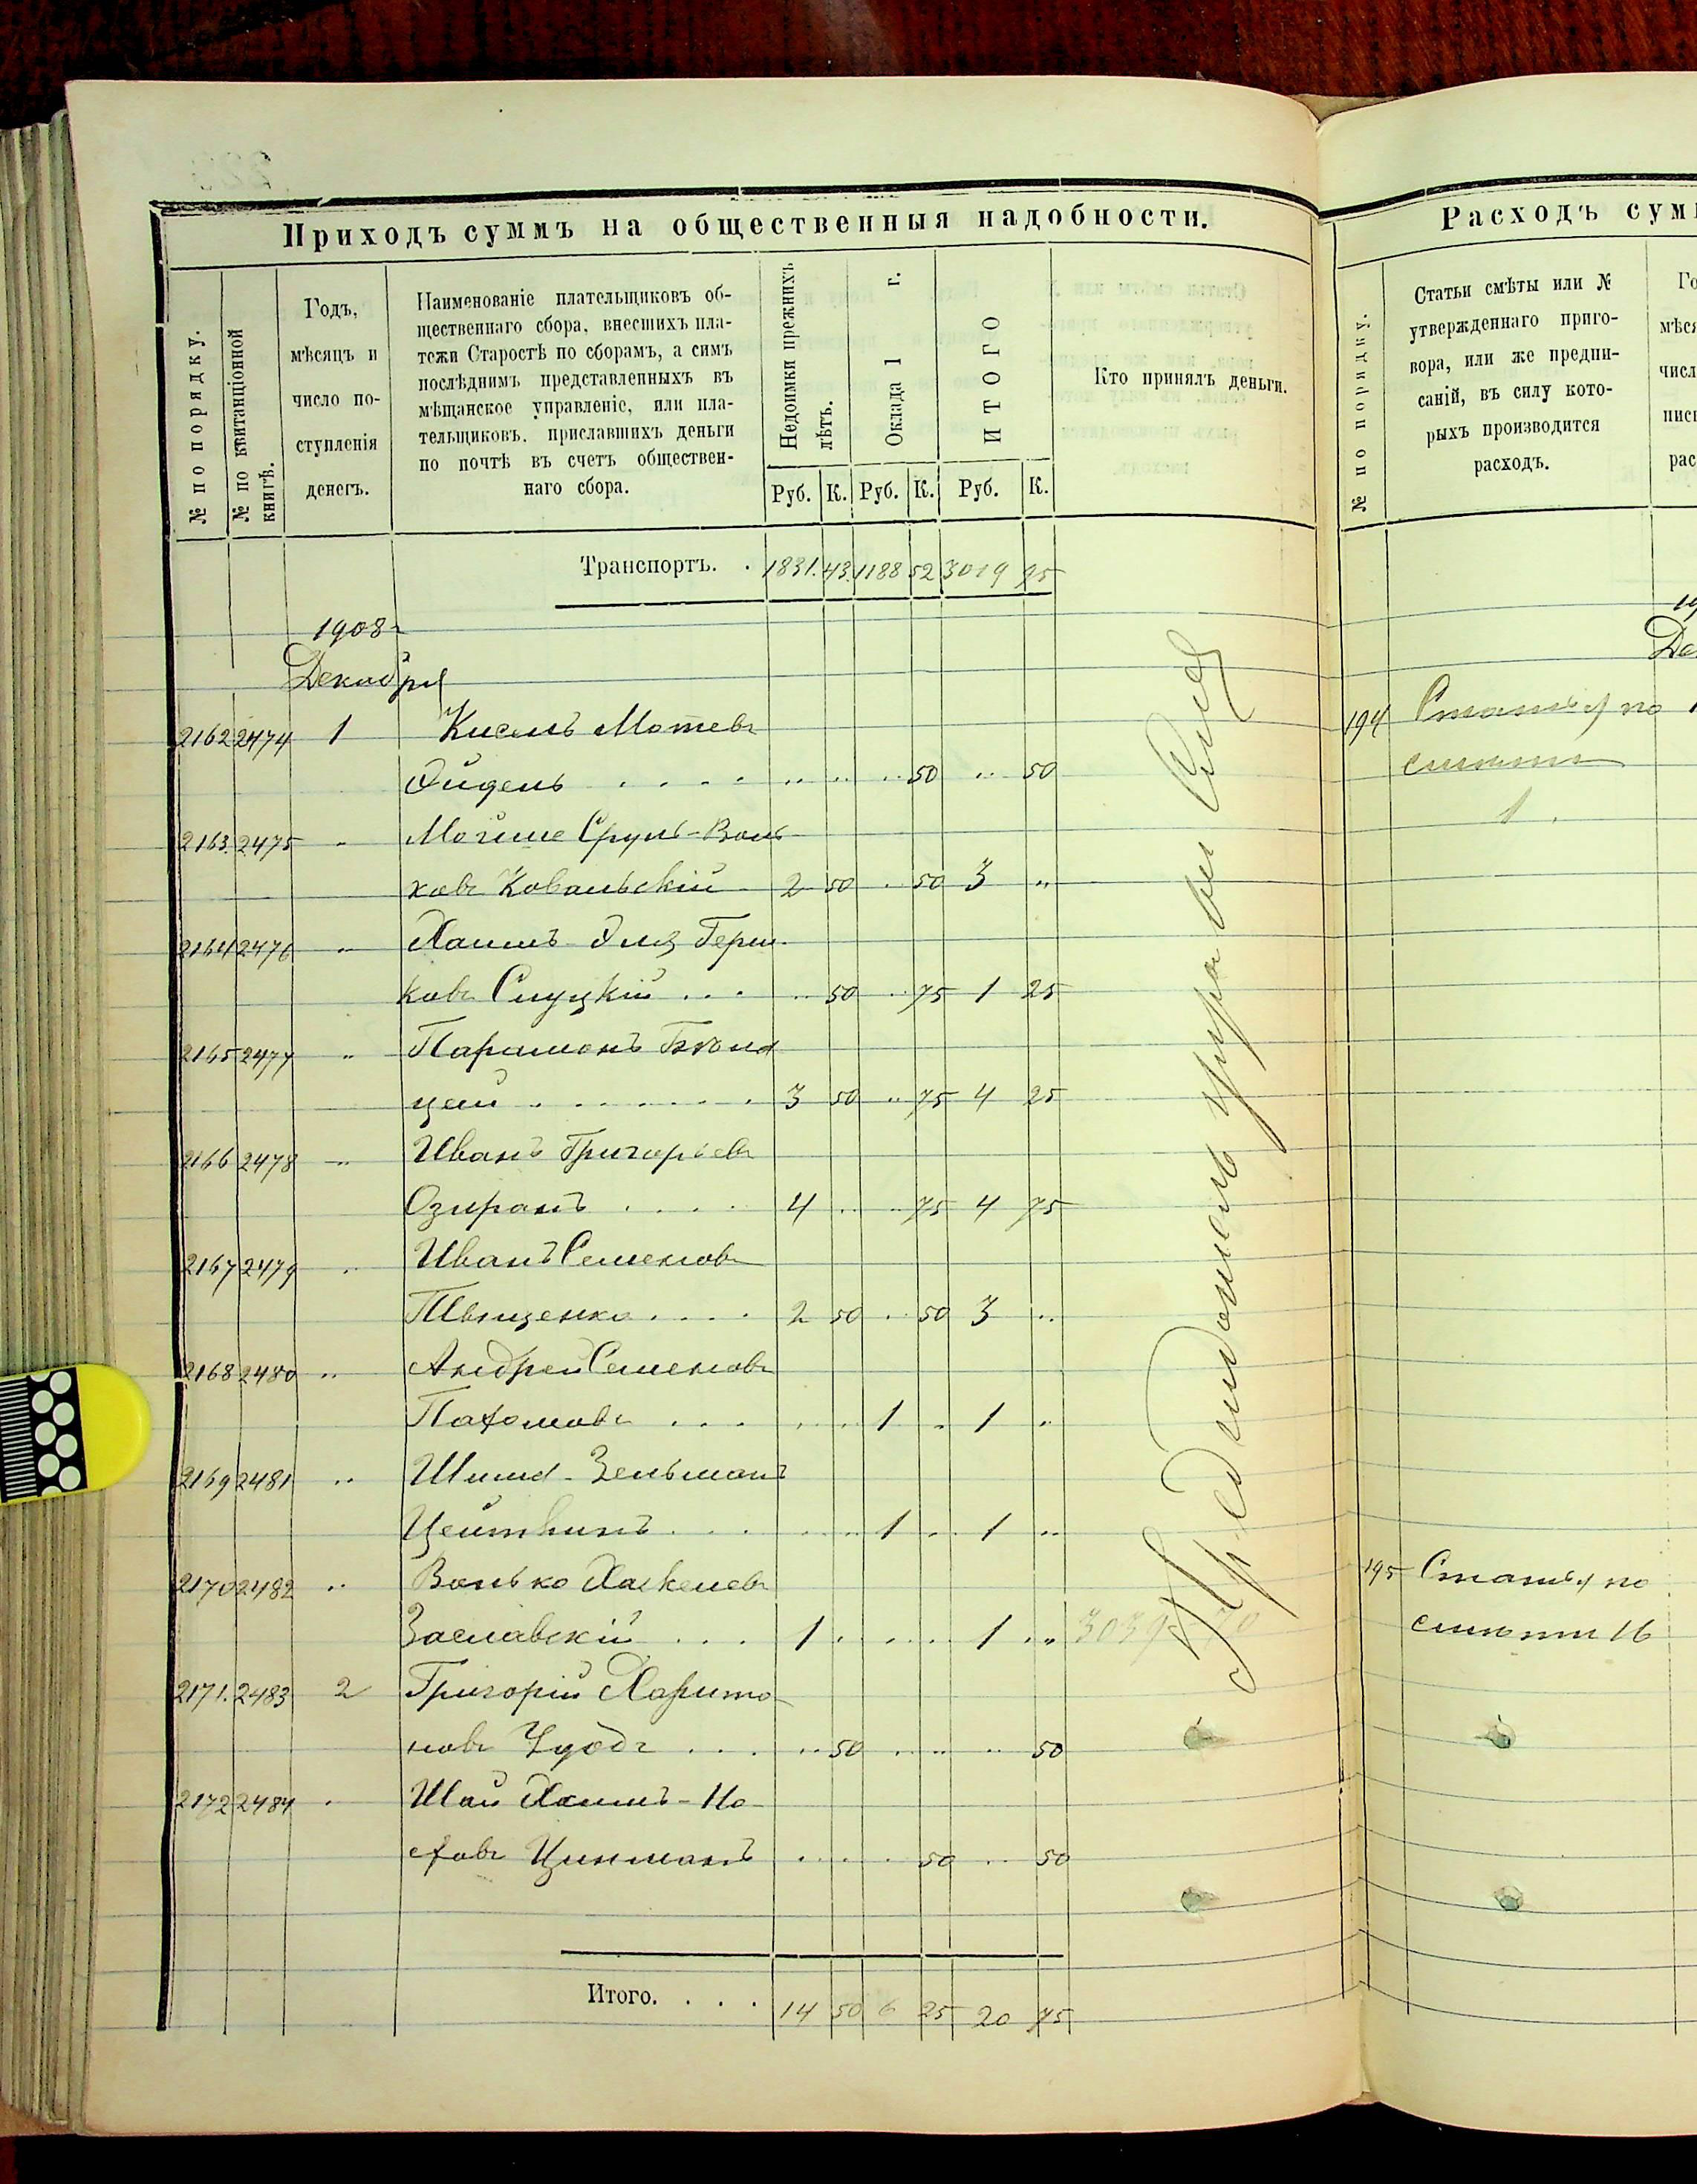 Приходъ суммъ на общественныя надобности.
№ по порядку.
№ по квитанціонной книгѣ.
Годъ,
мѣсяцъ и
число по-
ступленія
денегъ.
Наименованіе плательщиковъ об-
щественнаго сбора, внесшихъ пла-
тежи Старостѣ по сборамъ, а симъ
послѣднимъ представленныхъ въ
мѣщанское управленіе, или пла-
тельщиковъ, приславшихъ деньги
по почтѣ въ счетъ обществен-
наго сбора.
Недоимки прежнихъ лѣтъ.
Оклада 1 г.
ИТОГО
Кто принялъ деньги.
Руб. К. Руб. К. Руб. К.
Транспортъ. . 1831. 43. 1188 52 3019 95
1908
Декабря
2162 2474 1 Кисель Мотевъ
Эйдель . . . . .. .. .. 50 .. 50
2163. 2475 .. Мочше Сруль-Воль
ковъ Ковальскій 2 50 .. 50 3 ..
2164 2476 .. Хаимъ Герш-
ковъ Слуцкій . . . .. 50 .. 75 1 25
2165 2477 .. Парамонъ
цей . . . . . . . 3 50 .. 75 4 25
2166 2478 .. Иванъ Григорьевъ
Озиранъ . . . . 4 .. .. 75 4 75
2167 2479 .. Иванъ Семеновъ
. . . . 2 50 .. 50 3 ..
2168 2480 .. Андрей Семеновъ
Пахомовъ . . . .. .. 1 .. 1 ..
2169 2481 .. Шлема-Зельманъ
Цейтлинъ . . . .. .. 1 .. 1 ..
2170 2482 .. Волько Хаскелевъ
Заславскій . . . 1 .. .. .. 1 ..
3039 70
2171. 2483 2 Григорій Харито-
новъ . . . .. 50 .. .. .. 50
2172 2484 .. Шай Хаимъ-Ио-
сфовъ Цинманъ .. .. .. 50 .. 50
Итого. . . . 14 50 6 25 20 75
Расходъ сумм
№ по порядку.
Статьи смѣты или №
утвержденнаго приго-
вора, или же предпи-
саній, въ силу кото-
рыхъ производится
расходъ.
Го
мѣся
числ
пис
рас
19
Де
194 Статья по
смѣты
1.
195 Статья по
смѣты 16